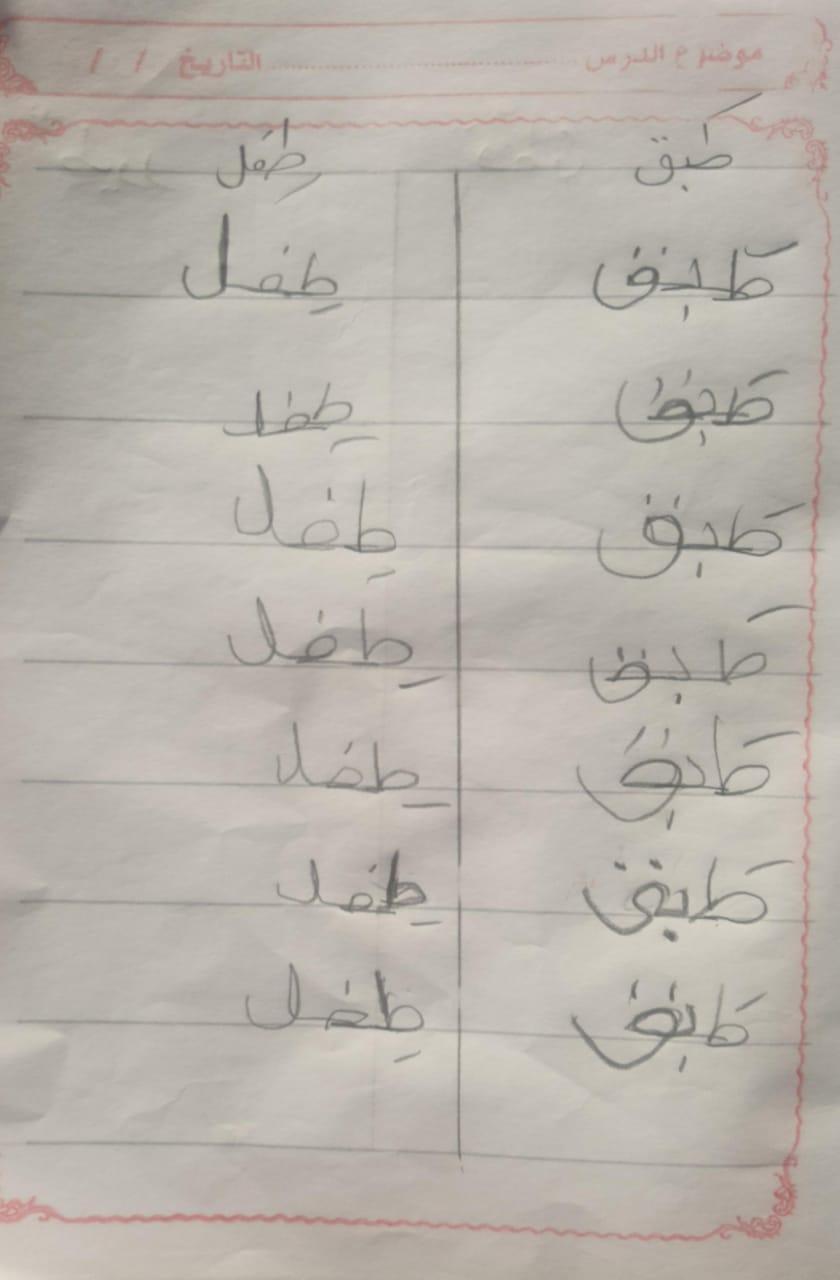 موضوع الدرس ........................ التاريخ / /
طَبق طِفل
طَبق طِفل
طَبق طِفل
طَبق طِفل
طَبق طِفل
طَبق طِفل
طَبق طِفل
طَبق طِفل